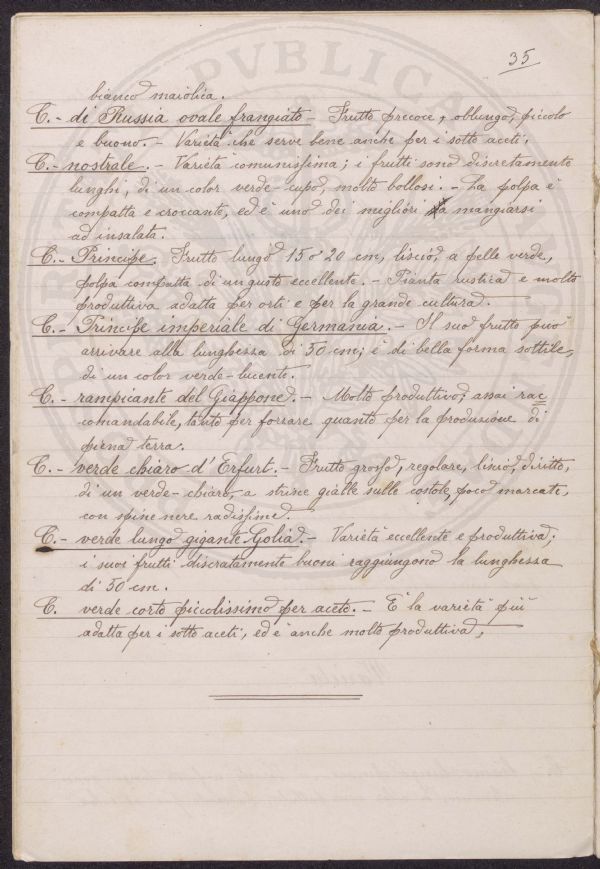 35
bianco maiolica.
C. - di Russia ovale frangiato - Frutto precoce, oblungo, piccolo
e buono. - Varietà che serve bene anche per i sotto aceti.
C. - nostrale. - Varietà comunissima; i frutti sono discretamente
lunghi, di un color verde-cupo, molto bollosi. - La polpa è
compatta e croccante, ed è uno dei migliori a mangiarsi
ad insalata.
C. - Principe. Frutto lungo 15 o 20 cm, liscio, a pelle verde,
polpa compatta di un gusto eccellente. - Pianta rustica e molto
produttiva adatta per orti e per la grande cultura. -
C. - Principe imperiale di Germania. - Il suo frutto può
arrivare alla lunghezza di 50 cm; è di bella forma sottile,
di un color verde-lucente.
C. - rampicante del Giappone. - Molto produttivo, assai rac
comandabile, tanto per forzare quanto per la produzione di
piena terra.
C. - verde chiaro d'Erfurt. - Frutto grosso, regolare, liscio, diritto,
di un verde-chiaro, a strisce gialle sulle costole, poco marcate,
con spine nere radissime.
C. - verde lungo gigante Golia. - Varietà eccellente e produttiva;
i suoi frutti discratamente buoni raggiungono la lunghezza
di 50 cm.
C. verde corto piccolissimo per aceto. - È la varietà più
adatta per i sotto aceti, ed è anche molto produttiva,
PVBLICA